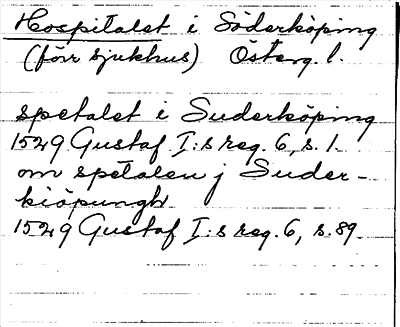 Hospitalet i Söderköping
(förr sjukhus) Österg. l.
spetalet i Suderköping
1529 Gustaf I:s reg. 6, s. 1.
om spetalen j Suder-
kiöpungh
1529 Gustaf I:s reg. 6, s. 89.